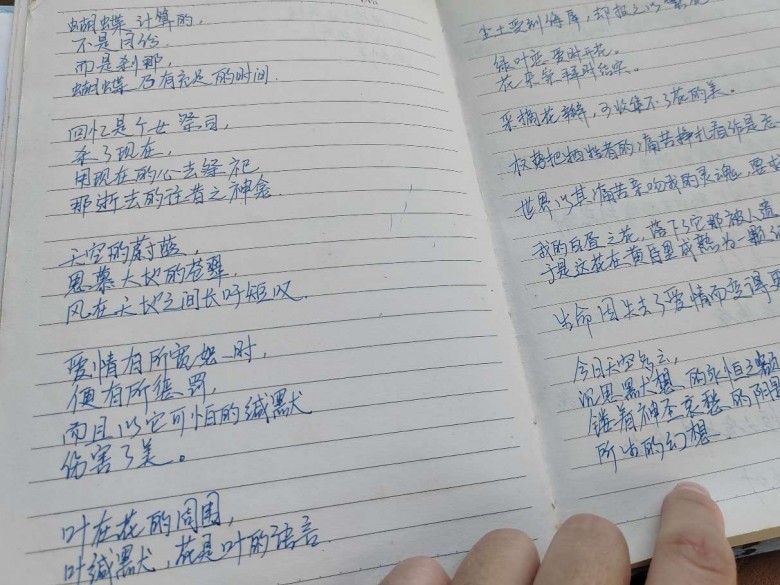 蝴蝶计算的,
不是月份
而是刹那,
蝴蝶乃有充足的时间
回忆是个女祭司,
杀了现在,
用现在的心去
那逝去的往昔之神龛
天空的蔚蓝,
思慕大地的苍翠,
风在天地之间长吁短叹
爱情有所宽恕时,
便有所惩罚,
而且以它可怕的缄默
伤害了美。
叶在花的周围,
叶缄默,花是叶的语言
尘土受到侮辱,却报之以
绿叶恋爱时
花
采摘花瓣,可收集不了花的美。
权势把牺牲者的痛苦挣扎看作是忘
世界以其痛苦亲吻我的灵魂,要求
我的白昼之花,落下了它那被人遗
于是这花在黄昏里成熟为一颗
生命因失去了爱情而变得更
今日天空多云,
沉思默想的永恒之额
镂着神圣哀愁的阴
所 的幻想